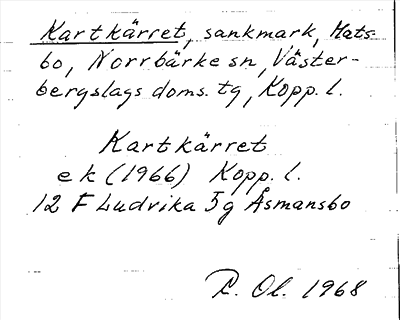 Kartkärret, sankmark, Mats-
bo, Norrbärke sn, Väster-
bergslags doms. tg, Kopp. l.
Kartkärret
ek (1966) Kopp. l.
12 F Ludvika 5g Åsmansbo
P. Ol. 1968